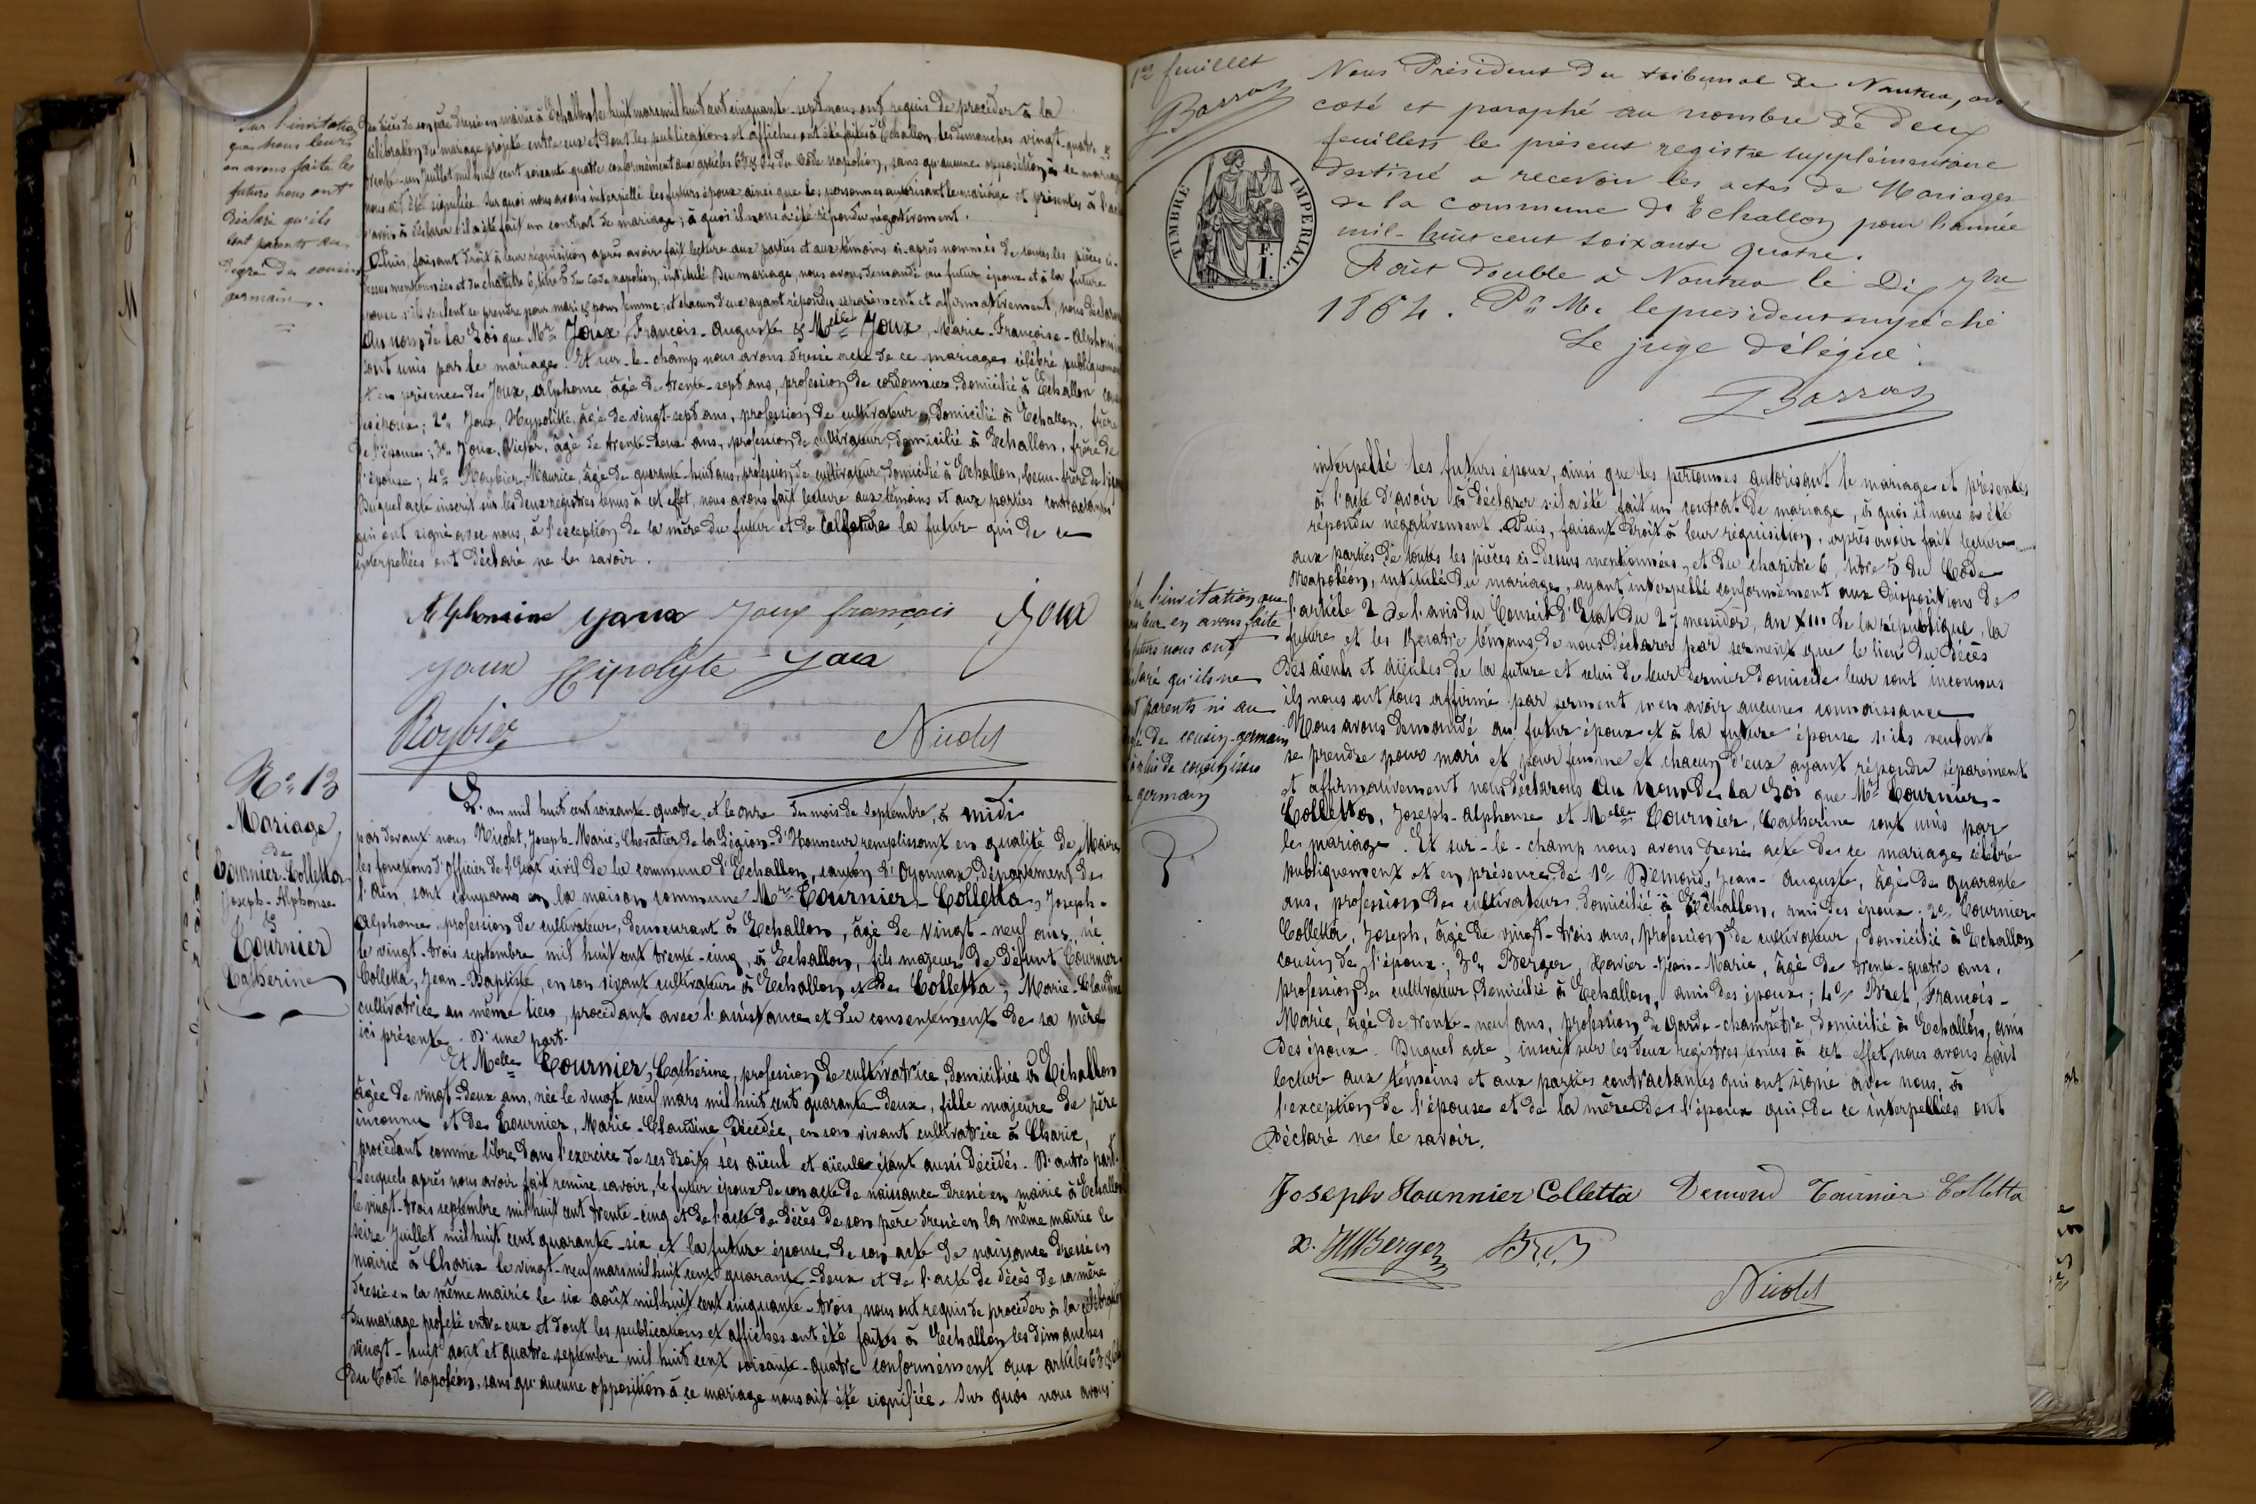 Sur l'invitation
que nous leurs
en avons faite les
futurs nous ont
déclaré qu'ils
sont parents au
degré de cousin
germain.
de son père dressé en mairie à Echallon le huit mars mil huit cent cinquante-sept nous ont requis de procéder à la
célébration du mariage projeté entre eux et dont les publications et affiches ont été faites à Echallon, les dimanches vingt-quatre &
trente-un Juillet mil huit cent soixante-quatre conformément aux articles 63 & 64 du Code Napoléon, sans qu'aucune opposition à ce mariage
nous ait été signifiée. Sur quoi nous avons interpellé les futurs époux ainsi que les personnes autorisant le mariage et présentes à l'acte
d'avoir à déclarer s'il a été fait un contrat de mariage ; à quoi il nous a été répondu négativement.
Puis, faisant droit à leur réquisition après avoir fait lecture aux parties et aux témoins ci-après nommés de toutes les pièces ci-
dessus mentionnées et du chapitre 6, titre 5 du Code Napoléon, intitulé du mariage, nous avons demandé au futur époux et à la future
épouse s'ils veulent se prendre pour mari & pour femme ; et chacun d'eux ayant répondu séparément et affirmativement, nous déclarons
Au nom de la Loi que Mr Joux, François-Auguste & Melle Joux, Marie-Françoise-Alphonsine
sont unis par le mariage. Et sur-le-champ nous avons dressé acte de ce mariage célébré publiquement
et en présence de Joux, Alphonse âgé de trente-sept ans, profession de cordonnier domicilié à Echallon
des époux ; 2° Joux, Hypolitte, âgé de vingt-sept ans, profession de cultivateur, domicilié à Echallon, frère
de l'épouse ; 3° Joux, Victor, âgé de trente-deux ans, profession de cultivateur, domicilié à Echallon, frère de
l'épouse ; 4° Roybier, Maurice, âgé de quarante-huit ans, profession de cultivateur domicilié à Echallon, beau-frère de
Duquel acte inscrit sur les deux registres tenus à cet effet, nous avons fait lecture aux témoins et aux parties contractantes
qui ont signé avec nous, à l'exception de la mère du futur et de la future qui de ce
interpellées ont déclaré ne le savoir.
Alphonsine Joux Joux françois Joux
Joux Hipolyte Joux
Roybier Nicolet
N° 13
Mariage
de
Tournier-Colletta
Joseph-Alphonse
&
Tournier
Catherine
L'an mil huit cent soixante-quatre et le onze du mois de septembre, à midi
par devant nous Nicolet, Joseph-Marie, Chevalier de la Légion-d'Honneur remplissant en qualité de Maire
les fonctions d'Officier de l'Etat civil de la commune d'Echallon, canton d'Oyonnax, Département de
l'Ain, sont comparus en la maison commune Mr Tournier-Colletta, Joseph-
Alphonse, profession de cultivateur, demeurant à Echallon, âgé de vingt-neuf ans, né
le vingt-trois septembre mil huit cent trente-cinq, à Echallon, fils majeur de défunt Tournier
Colletta, Jean-Baptiste, en son vivant cultivateur à Echallon et de Colletta, Marie-Claudine
cultivatrice au même lieu, procédant avec l'assistance et du consentement de sa mère
ici présente. D'une part.
Et Melle Tournier, Catherine, profession de cultivatrice, domiciliée à Echallon
âgée de vingt-deux ans, née le vingt neuf mars mil huit cent quarante deux, fille majeure de père
inconnu et de Tournier, Marie-Claudine, décédée, en son vivant cultivatrice à Charix,
procédant comme libre dans l'exercice de ses droits, ses aïeul et aïeule étant aussi décédés. D'autre part.
Lesquels après nous avoir fait remise savoir, le futur époux de son acte de naissance dressé en mairie à Echallon
le vingt-trois septembre mil huit cent trente-cinq et de l'acte de décès de son père dressé en la même mairie le
seize Juillet mil huit cent quarante-six et la future épouse de son acte de naissance dressé en
mairie à Charix le vingt-neuf mars mil huit cent quarante-deux et de l'acte de décès de sa mère
dressé en la même mairie le six août mil huit cent cinquante-trois, nous ont requis de procéder à la célébration
du mariage projeté entre eux et dont les publications et affiches ont été faites à Echallon les dimanches
vingt-huit août et quatre septembre mil huit cent soixante-quatre conformément aux articles 63 & 64
du Code Napoléon, sans qu'aucune opposition à ce mariage nous ait été signifiée. Sur quoi nous avons
1er feuillet
Barras
TIMBRE IMPERIAL.
F.
1.
Nous Président du tribunal de Nantua, avons
coté et paraphé au nombre de deux
feuillets le présent registre supplémentaire
destiné a recevoir les actes de Mariages
de la commune d'Echallon pour l'année
mil-huit cent soixante quatre.
Fait double à Nantua le Dix 7bre
1864. Pr Mr le président empêché
Le juge délégué.
Barras
interpellé les futurs époux, ainsi que les personnes autorisant le mariage et présentes
à l'acte d'avoir à déclarer s'il a été fait un contrat de mariage, à quoi il nous a été
répondu négativement. Puis, faisant droit à leur réquisition, après avoir fait lecture
aux parties de toutes les pièces ci-dessus mentionnées, et du chapitre 6, titre 5 du Code
Napoléon, intitulé du mariage, ayant interpellé conformément aux dispositions de
l'article 2 de l'avis du Conseil d'Etat du 27 messidor, an XIII de la république, la
future et les quatre témoins, de nous déclarer par serment que le lieu du décès
des aïeuls et aïeules de la future et celui de leur dernier domicile leur sont inconnus
ils nous ont tous affirmé par serment n'en avoir aucune connaissance
Nous avons demandé au futur époux et à la future épouse s'ils veulent
se prendre pour mari et pour femme et chacun d'eux ayant répondu séparément
et affirmativement nous déclarons Au nom de la Loi que Mr Tournier-
Colletta, Joseph-Alphonse et Melle Tournier, Catherine sont unis par
le mariage. Et sur-le-champ nous avons dressé acte de ce mariage célébré
publiquement et en présence de 1° Demond, Jean-Auguste, âgé de quarante
ans, profession de cultivateur, domicilié à Echallon, ami des époux. 2° Tournier
Colletta, Joseph, âgé de vingt-trois ans, profession de cultivateur, domicilié à Echallon
cousin de l'époux ; 3° Berger, Xavier-Jean-Marie, âgé de trente-quatre ans,
profession de cultivateur, domicilié à Echallon, ami des époux ; 4° Bret, François-
Marie, âgé de trente-neuf ans, profession de garde-champêtre, domicilié à Echallon, ami
des époux. Duquel acte, inscrit sur les deux registres tenus à cet effet, nous avons fait
lecture aux témoins et aux parties contractantes qui ont signé avec nous, à
l'exception de l'épouse et de la mère de l'époux qui, de ce interpellées ont
déclaré ne le savoir.
l'invitation que
leur en avons faite
futurs nous ont
qu'ils ne
parents ni au
de cousin-germain
de cousin issu
germain
Joseph Tounnier Colletta Demond Tournier Colletta
x. JM Berger Bret
Nicolet